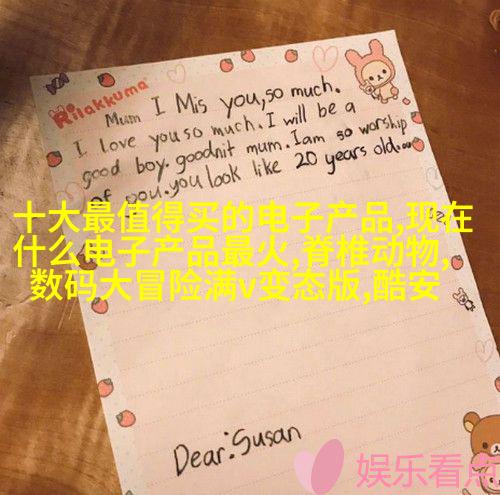 Rilakkuma
Mum I Mis you,so much.
I love you so much. I will be a
good boy. goodnit mum. Iam so worship
of you. you look like 20 years old.
十大最值得买的电子产品,现在
什么电子产品最火,脊椎动物,
数码大冒险满v变态版,酷安
Dear:Susan
娱乐看点